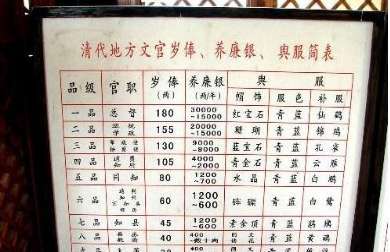 清代地方文官岁俸、养廉银、舆服简表
品级 官职 岁俸(两) 养廉银(两/年) 舆服
帽饰 服色 补服
一品 总督 180 30000~15000 红宝石 青蓝 仙鹤
二品 巡抚 155 20000~15000 珊瑚 青蓝 锦鸡
三品 130 9000~8000 蓝宝石 青蓝 孔雀
四品 道员 知府 105 4000~2000 青金石 青蓝 云雁
五品 同知 80 1200~700 水晶 青蓝 白鹇
六品 60 1200~600 砗磲 青蓝 白鹭
七品 知县 45 1200~600 素金顶 青蓝
八品 40 青蓝